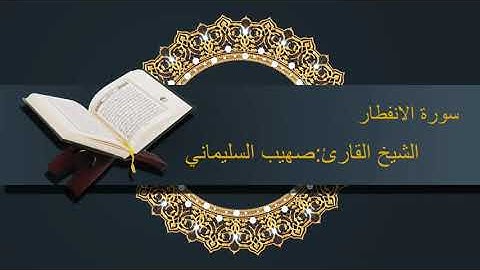 سورة الانفطار
الشيخ القارئ:صهيب السليماني